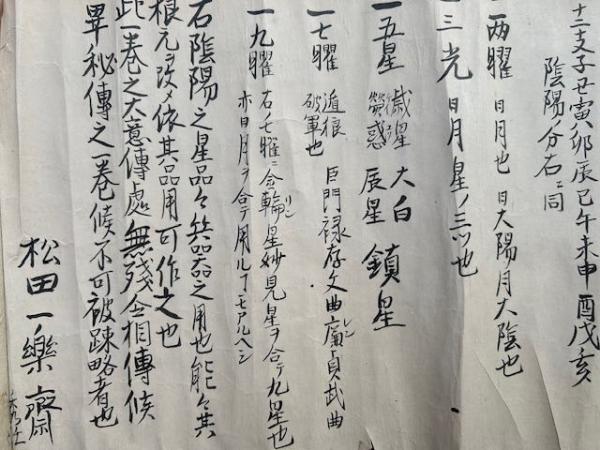 十二支子丑寅卯辰巳午未申酉戌亥
陰陽分右ニ同
一両曜 日月也 日大陽月大陰也
一三光 日月星ノ三ツ也
一五星 歳星 大白
熒惑 辰星 鎮星
一七曜 巨門禄存文曲廉貞武曲
破軍也
一九曜 右ノ七曜ニ金輪星妙見星ヲ合テ九星也
亦日月ヲ合テ用ルヿモアルヘシ
右陰陽之星品々兵器之用也能々其
根元ヲ改メ依其品用可作之也
此一巻之大意傳處無残令相傳候
畢秘傳之一巻候不可被踈略者也
松田一樂齋